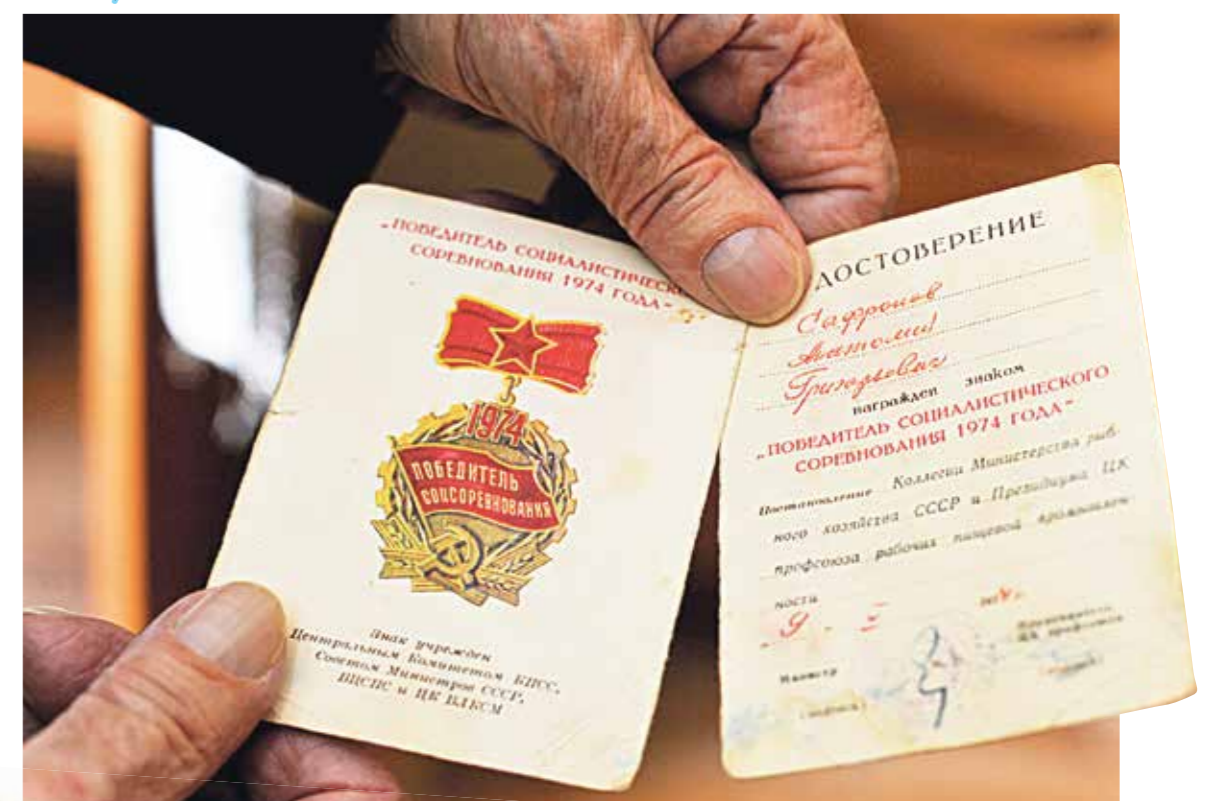 „ПОБЕДИТЕЛЬ СОЦИАЛИСТИЧЕСК
СОРЕВНОВАНИЯ 1974 ГОДА“
1974
ПОБЕДИТЕЛЬ
СОЦСОРЕВНОВАНИЯ
Знак учрежден
Центральным Комитетом КПСС,
Советом Министров СССР,
ВЦСПС и ЦК ВЛКСМ
ДОСТОВЕРЕНИЕ
Сафронов
Анатолий
Григорьевич
награжден знаком
„ПОБЕДИТЕЛЬ СОЦИАЛИСТИЧЕСКОГО
СОРЕВНОВАНИЯ 1974 ГОДА“
Постановление Коллегии Министерства рыб-
ного хозяйства СССР и Президиума ЦК
профсоюза рабочих пищевой промышлен-
ности
Министр
Председатель
ЦК профсоюза
(подпись)